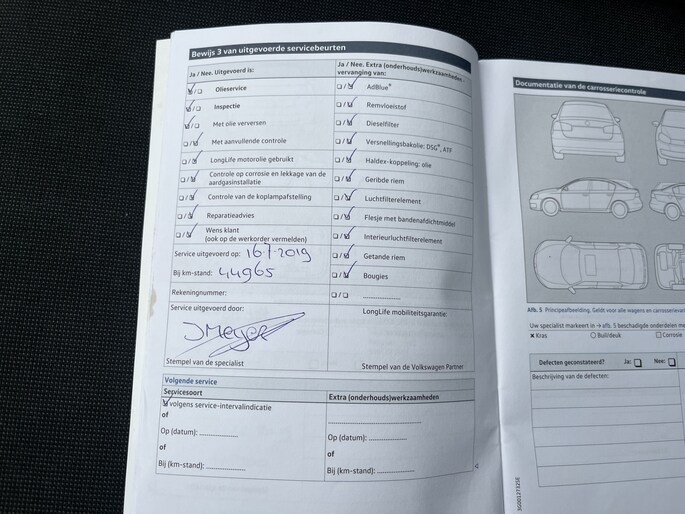 Bewijs 3 van uitgevoerde servicebeurten
Ja / Nee. Uitgevoerd is:
Olieservice
Inspectie
Met olie verversen
Met aanvullende controle
LongLife motorolie gebruikt
Controle op corrosie en lekkage van de
aardgasinstallatie
Controle van de koplampafstelling
Reparatieadvies
Wens klant
(ook op de werkorder vermelden)
Service uitgevoerd op: 16-7-2019
Bij km-stand: 44965
Rekeningnummer:
Service uitgevoerd door:
JMeyer
Stempel van de specialist
Ja / Nee. Extra (onderhouds)werkzaamheden:
vervanging van:
AdBlue®
Remvloeistof
Dieselfilter
Versnellingsbakolie: DSG®, ATF
Haldex-koppeling: olie
Geribde riem
Luchtfilterelement
Flesje met bandenafdichtmiddel
Interieurluchtfilterelement
Getande riem
Bougies
LongLife mobiliteitsgarantie:
Stempel van de Volkswagen Partner
Volgende service
Servicesoort
volgens service-intervalindicatie
of
Op (datum):
of
Bij (km-stand):
Extra (onderhouds)werkzaamheden
Op (datum):
of
Bij (km-stand):
Documentatie van de carrosseriecontrole
Afb. 5 Principeafbeelding. Geldt voor alle wagens en
Uw specialist markeert in → afb. 5 beschadigde onderdelen
Kras Buil/deuk Corrosie
Defecten geconstateerd? Ja: Nee:
Beschrijving van de defecten: